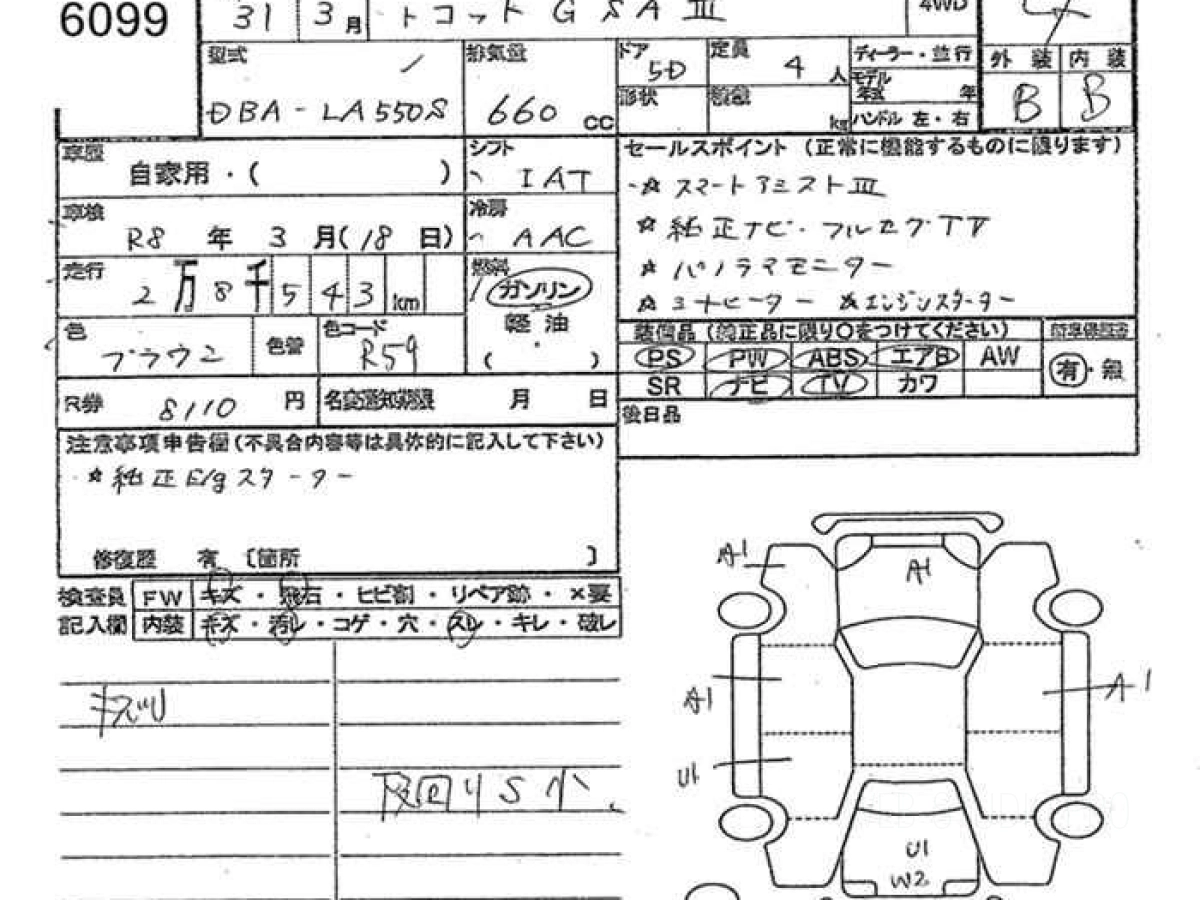 6099
31 3月 トコット G SA III 4WD
型式 排気量 ドア 5D 定員 4人 ディーラー・並行 外装 内装
モデル年式 年
DBA-LA550S 660 CC 形状 積載 kg ハンドル 左・右 B B
車歴 自家用・( ) シフト IAT セールスポイント (正常に機能するものに限ります)
☆ スマートアシスト III
車検 R8年 3月(18日) 冷房 AAC
☆ 純正ナビ・フルセグTV
☆ パノラマモニター
走行 2万8千543km 燃料 ガソリン
軽油
( )
☆ シートヒーター ☆エンジンスターター
色 ブラウン 色替 色コード R59
装備品 (純正品に限り○をつけてください)
PS PW ABS エアB AW 有・無
SR ナビ TV カワ
R券 8110円 名変通知期限 月 日 後日品
注意事項申告欄(不具合内容等は具体的に記入して下さい)
☆ 純正E/gスターター
修復歴 有 〔箇所 〕
検査員 FW キズ・飛石・ヒビ割・リペア跡・×要
記入欄 内装 キズ・汚レ・コゲ・穴・スレ・キレ・破レ
A1 A1
キズツ
A1 A1
U1
回りS小
U1
W2